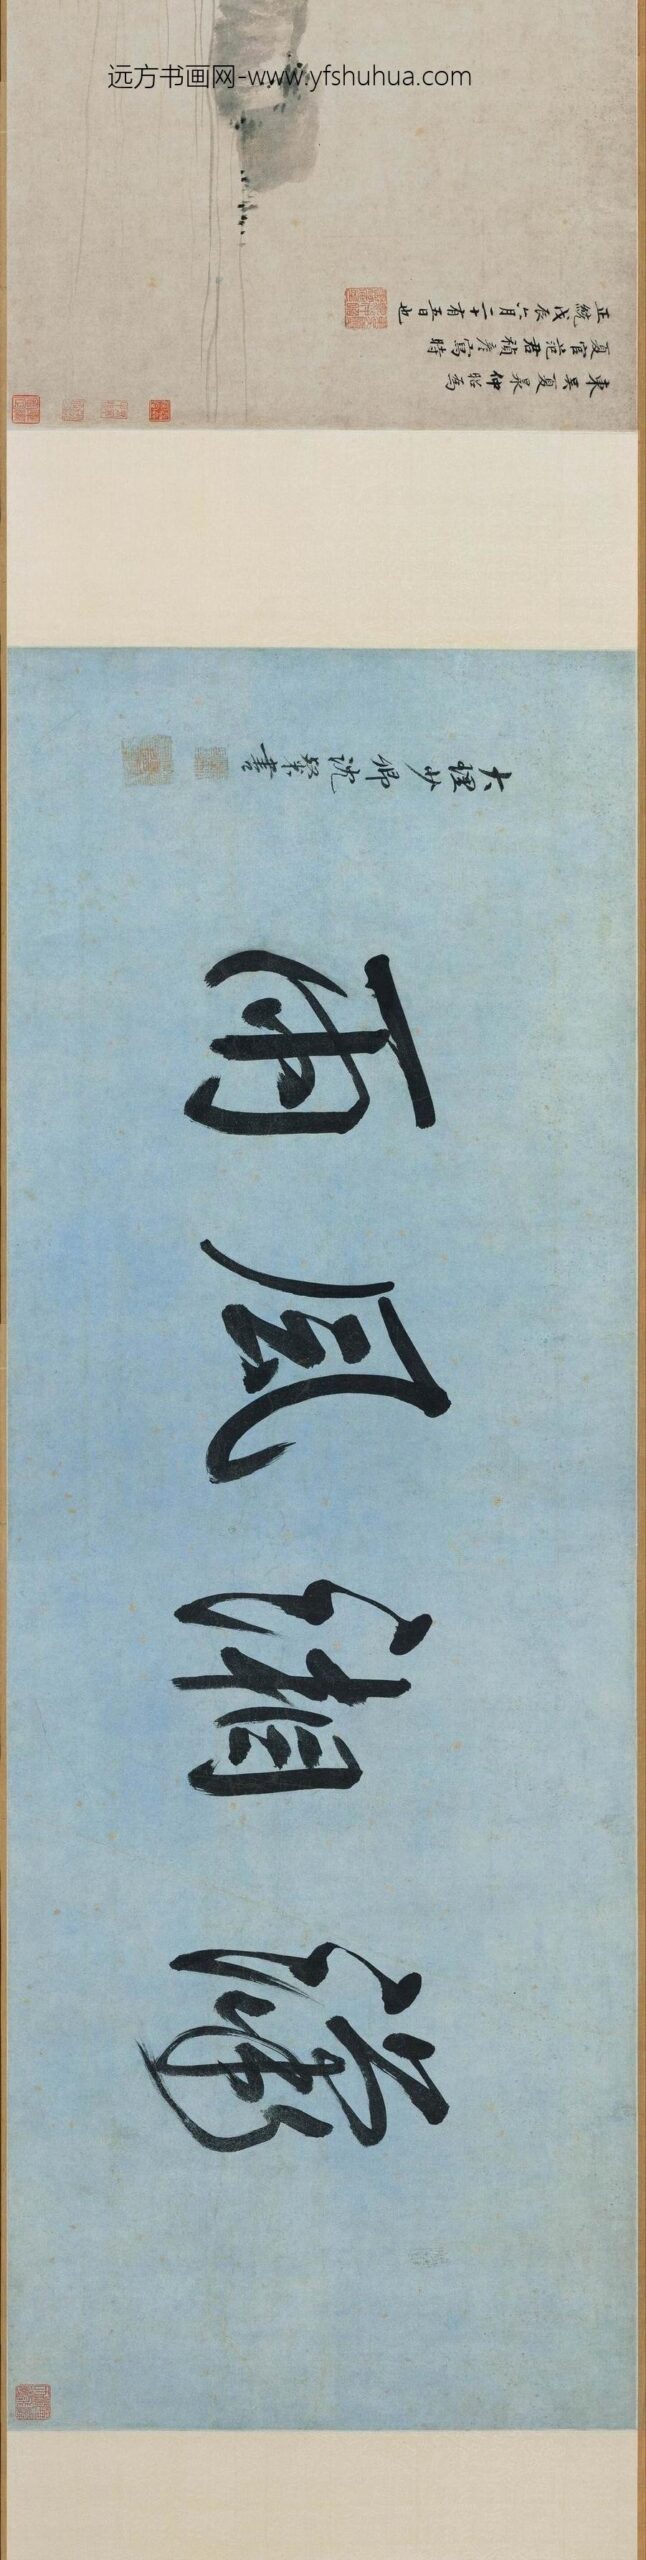 远方书画网-www.yfshuhua.com
瀟湘風雨
大理少卿沈粲書
東吳夏㫤仲昭為
夏官范君禎彥寫時
正統戊辰六月二十有五日也